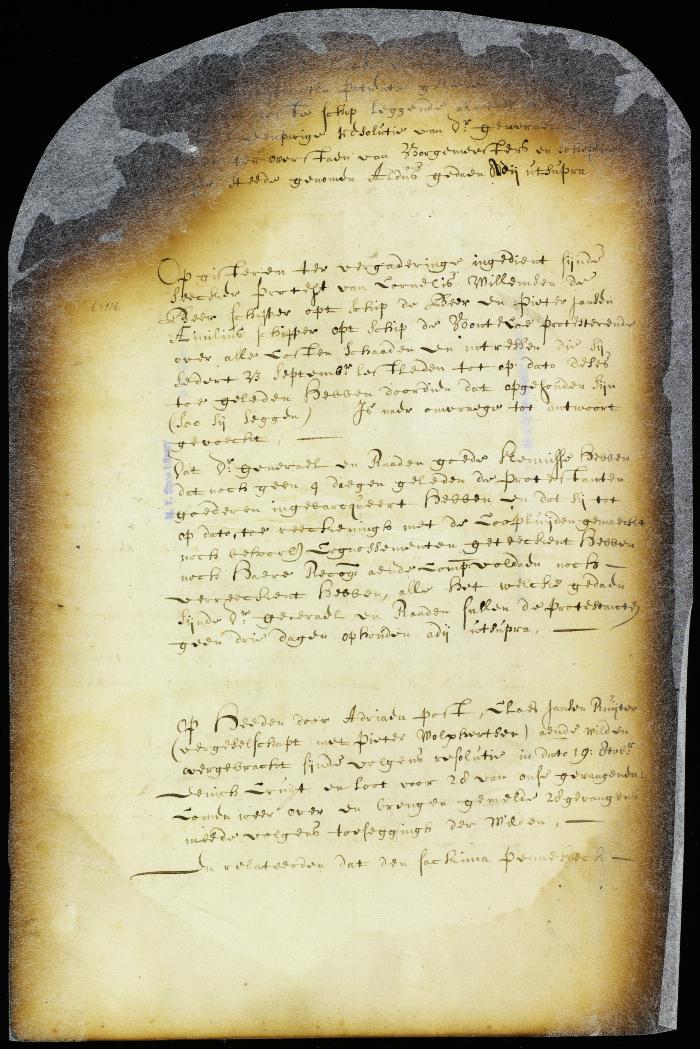 schip leggende
eenparige resolutie van Dr. generael
ten overstaen van Borgemeesters en schepenen
steede genomen Aldus gedaen Adij utsupra
Op gisteren ter vergaderinge ingedient sijnde
seecker protest van Cornelis Willemsen de
Beer schipper opt schip de Beer en Pieter Jansen
Aemilius schipper opt schip de Bonte Coe protesterende
over alle Costen schaaden en intressen die sij
sedert 23 Septembr. lestleden tot op dato deses
toe geleden hebben doordien dat opgehouden sijn
(soo sij seggen) Is naer omvraege tot antwoort
gevoecht,
Dat Dr. generael en Raaden goede kennisse hebben
dat noch geen 4 daegen geleden de protestanten
goederen ingebarcqueert hebben en dat sij tot
op dato toe reeckeningh met de Coopluijden gemaeckt
noch behoorl) Cognossementen geteeckent hebben
noch haere Recog: aende Comp: voldaen noch
verreeckent hebben, alle het welcke gedaen
sijnde Dr. generael en Raaden sullen de protestanten
geen drie dagen ophouden adij utsupra,
Op Heeden door Adriaen post, Claes Jansen Ruijter
(vergeselschapt met Pieter Wolphertsen) aende wilden
overgebracht sijnde volgens resolutie in dato 19: Octobr.
eenich Cruijt en loot voor 28 van onse gevangenen:
Comen weer over en brengen gemelde 28 gevangens
meede volgens toeseggingh der Wilden,
En relateerden dat den sackima Pennekeck